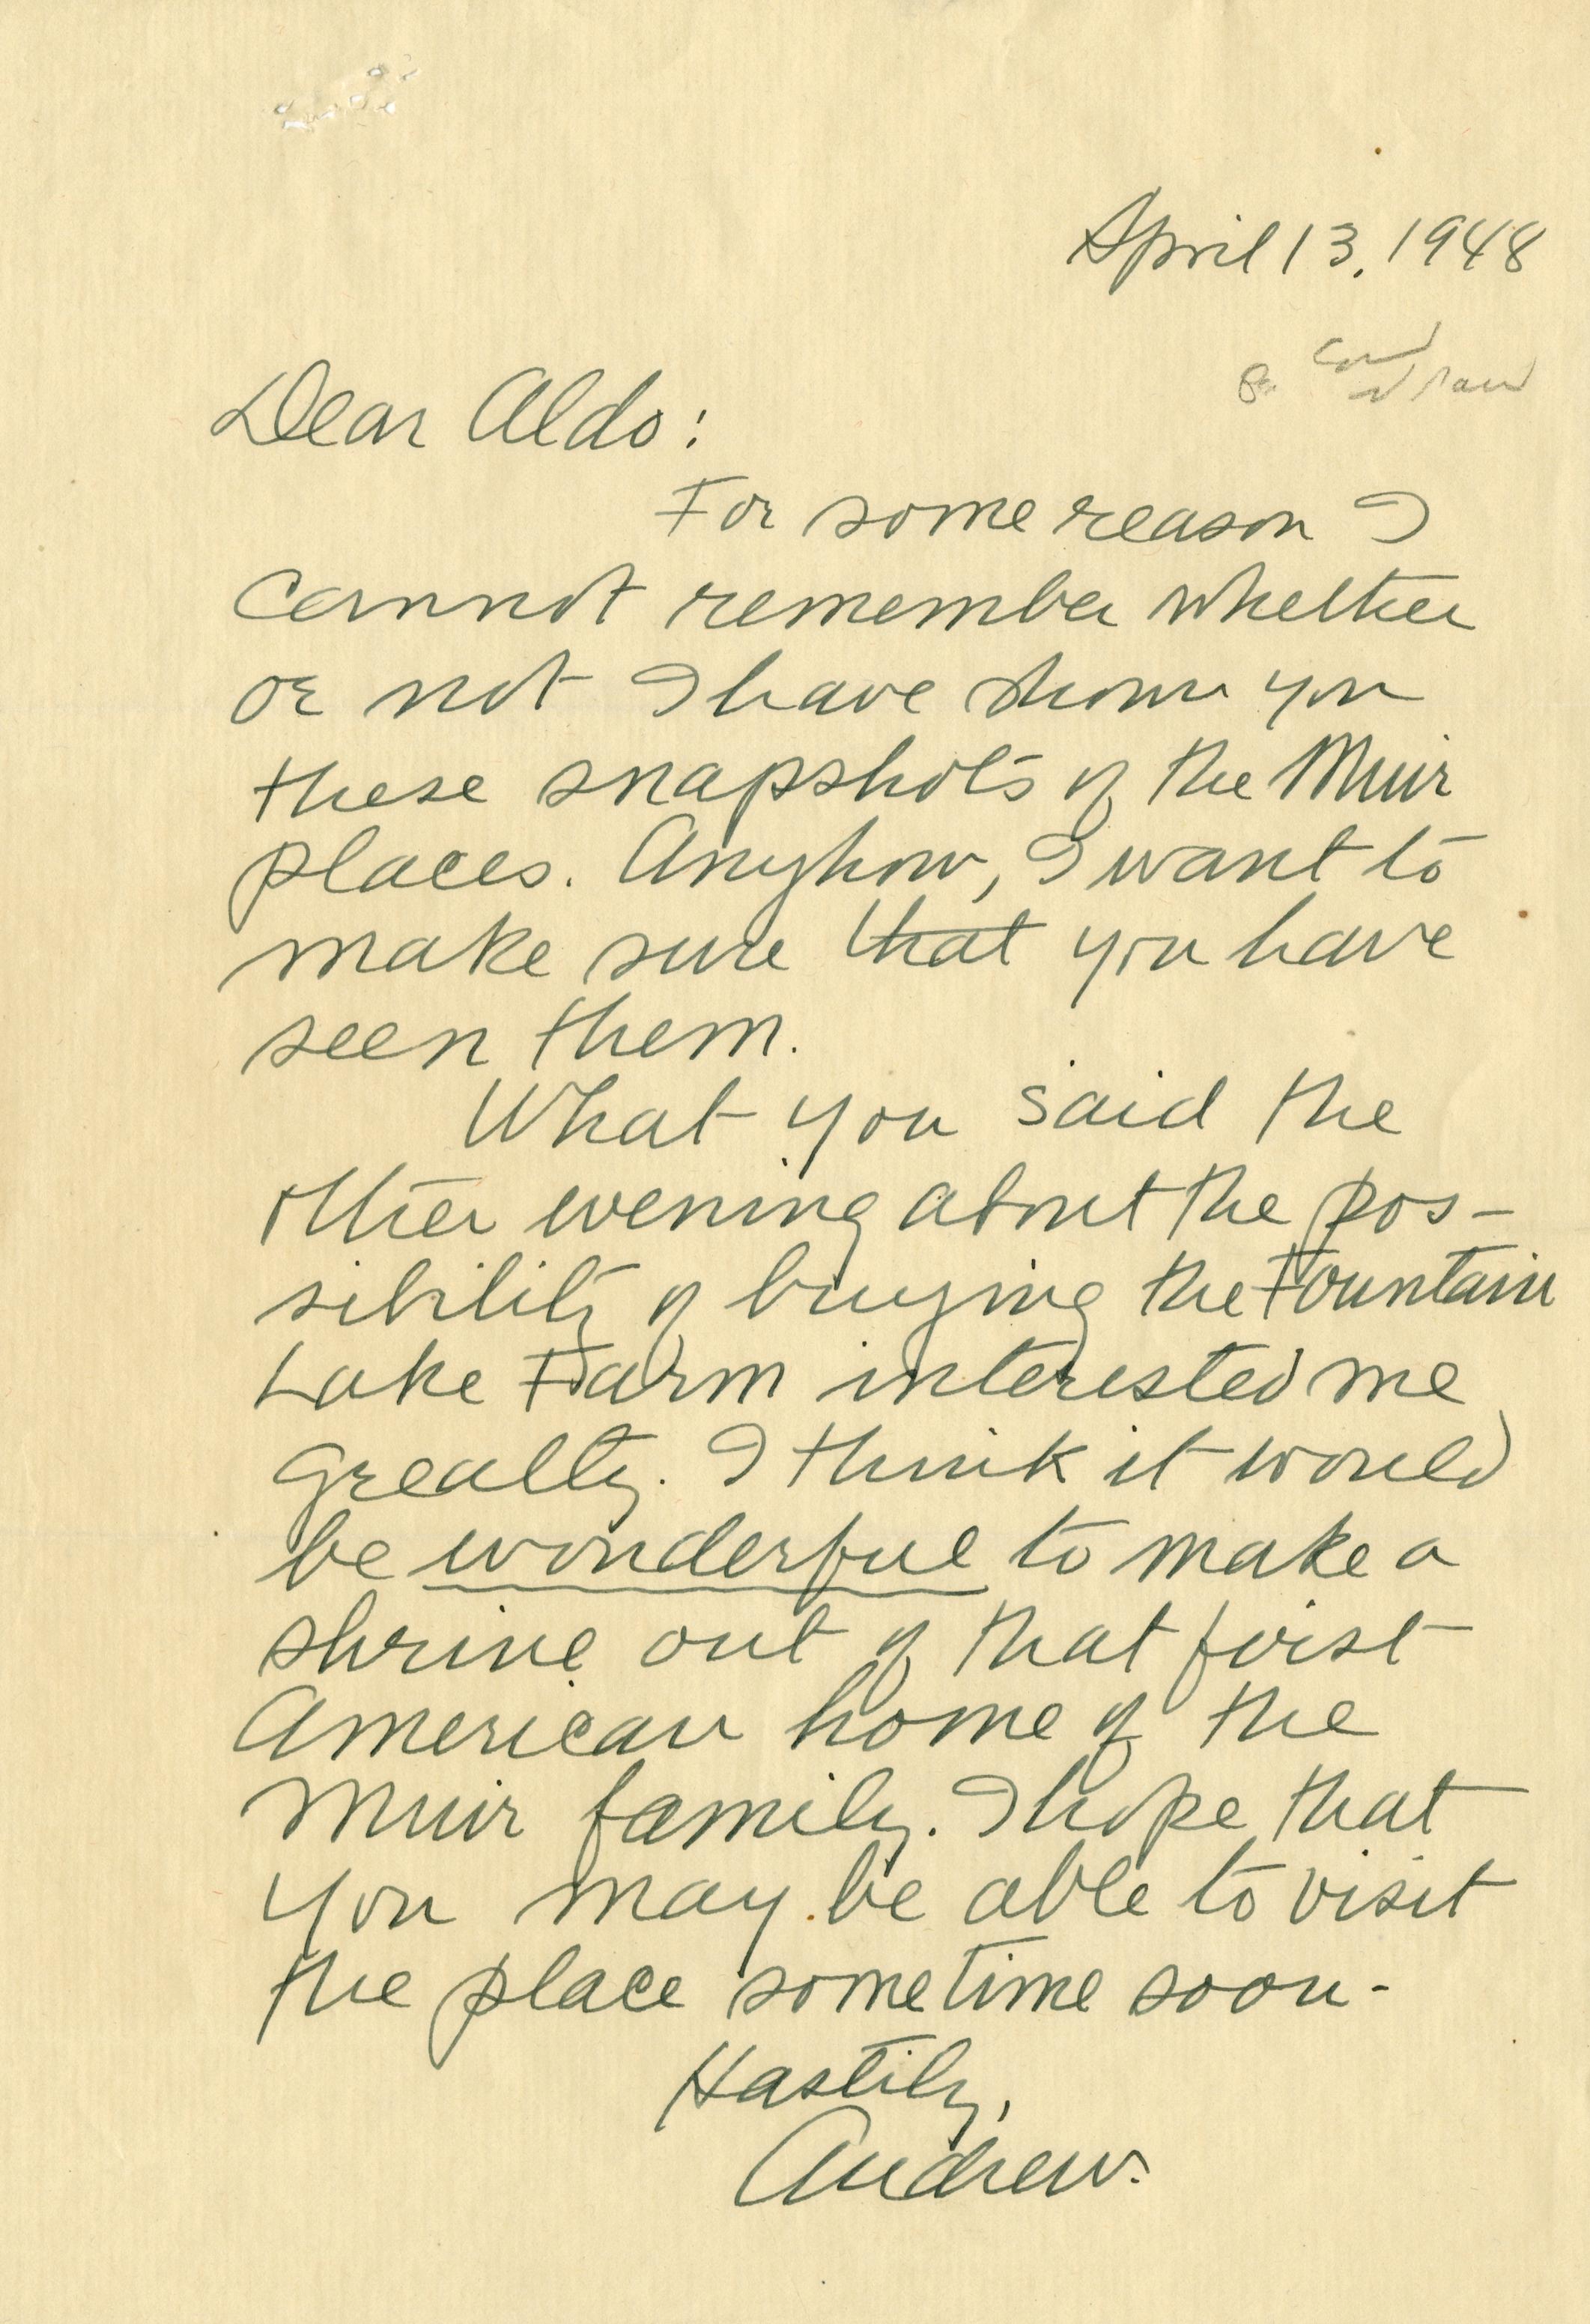 April 13, 1948
Dear Aldo:
For some reason I
cannot remember whether
or not I have shown you
these snapshots of the Muir
places. Anyhow, I want to
make sure that you have
seen them.
What you said the
other evening about the pos-
sibility of buying the Fountain
Lake Farm interested me
greatly. I think it would
be wonderful to make a
shrine out of that first
American home of the
Muir family. I hope that
you may be able to visit
the place sometime soon-
Hastily,
Andrew.